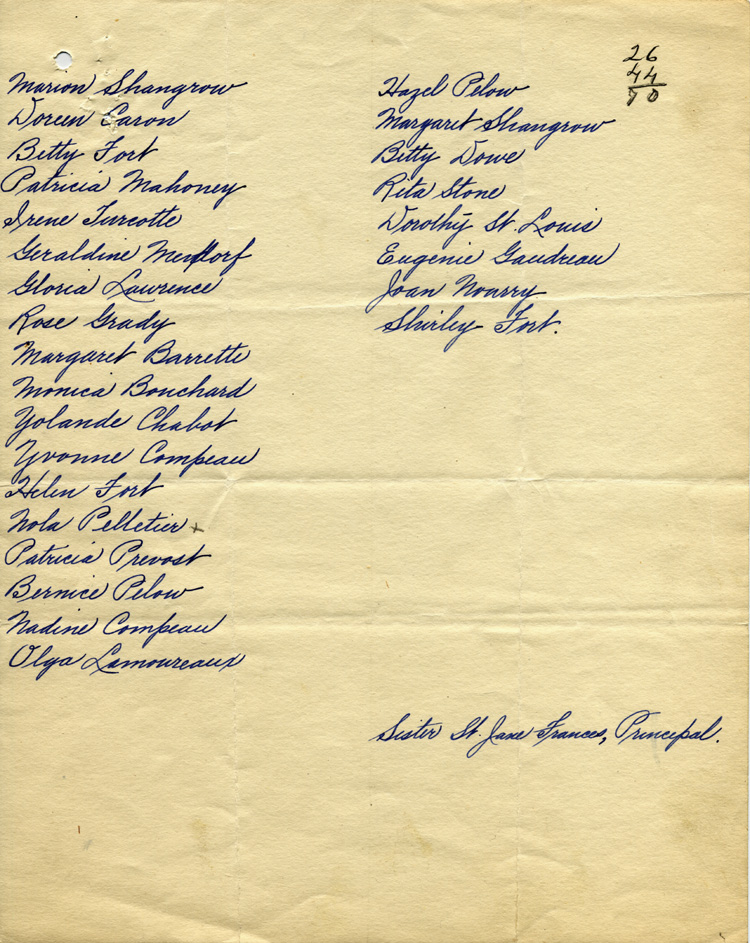 Marion Shangrow
Doreen Caron
Betty Fort
Patricia Mahoney
Irene Turcotte
Geraldine
Gloria Lawrence
Rose Grady
Margaret Barrette
Monica Bouchard
Yolande Chabot
Yvonne Compeau
Helen Fort
Nola Pelletier x
Patricia Prevost
Bernice Pelow
Nadine Compeau
Olga Lamoureaux
26
44
70
Hazel Pelow
Margaret Shangrow
Betty Dowe
Rita Stone
Dorothy St. Louis
Eugenie Gaudreau
Joan Nourry
Shirley Fort.
Sister St. Jane Frances, Principal.